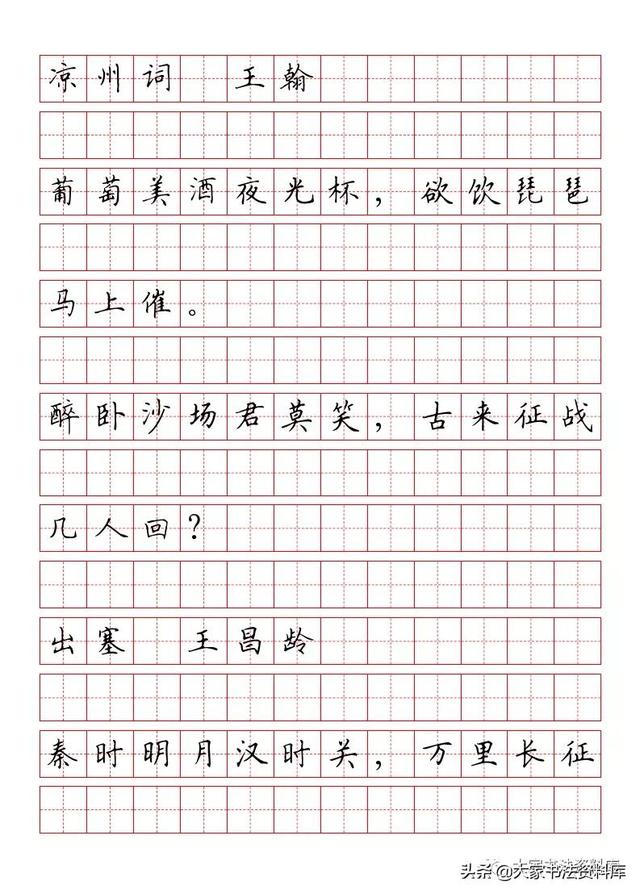 凉州词 王翰
葡萄美酒夜光杯，欲饮琵琶
马上催。
醉卧沙场君莫笑，古来征战
几人回？
出塞 王昌龄
秦时明月汉时关，万里长征
大家书法资料库
头条@大家书法资料库